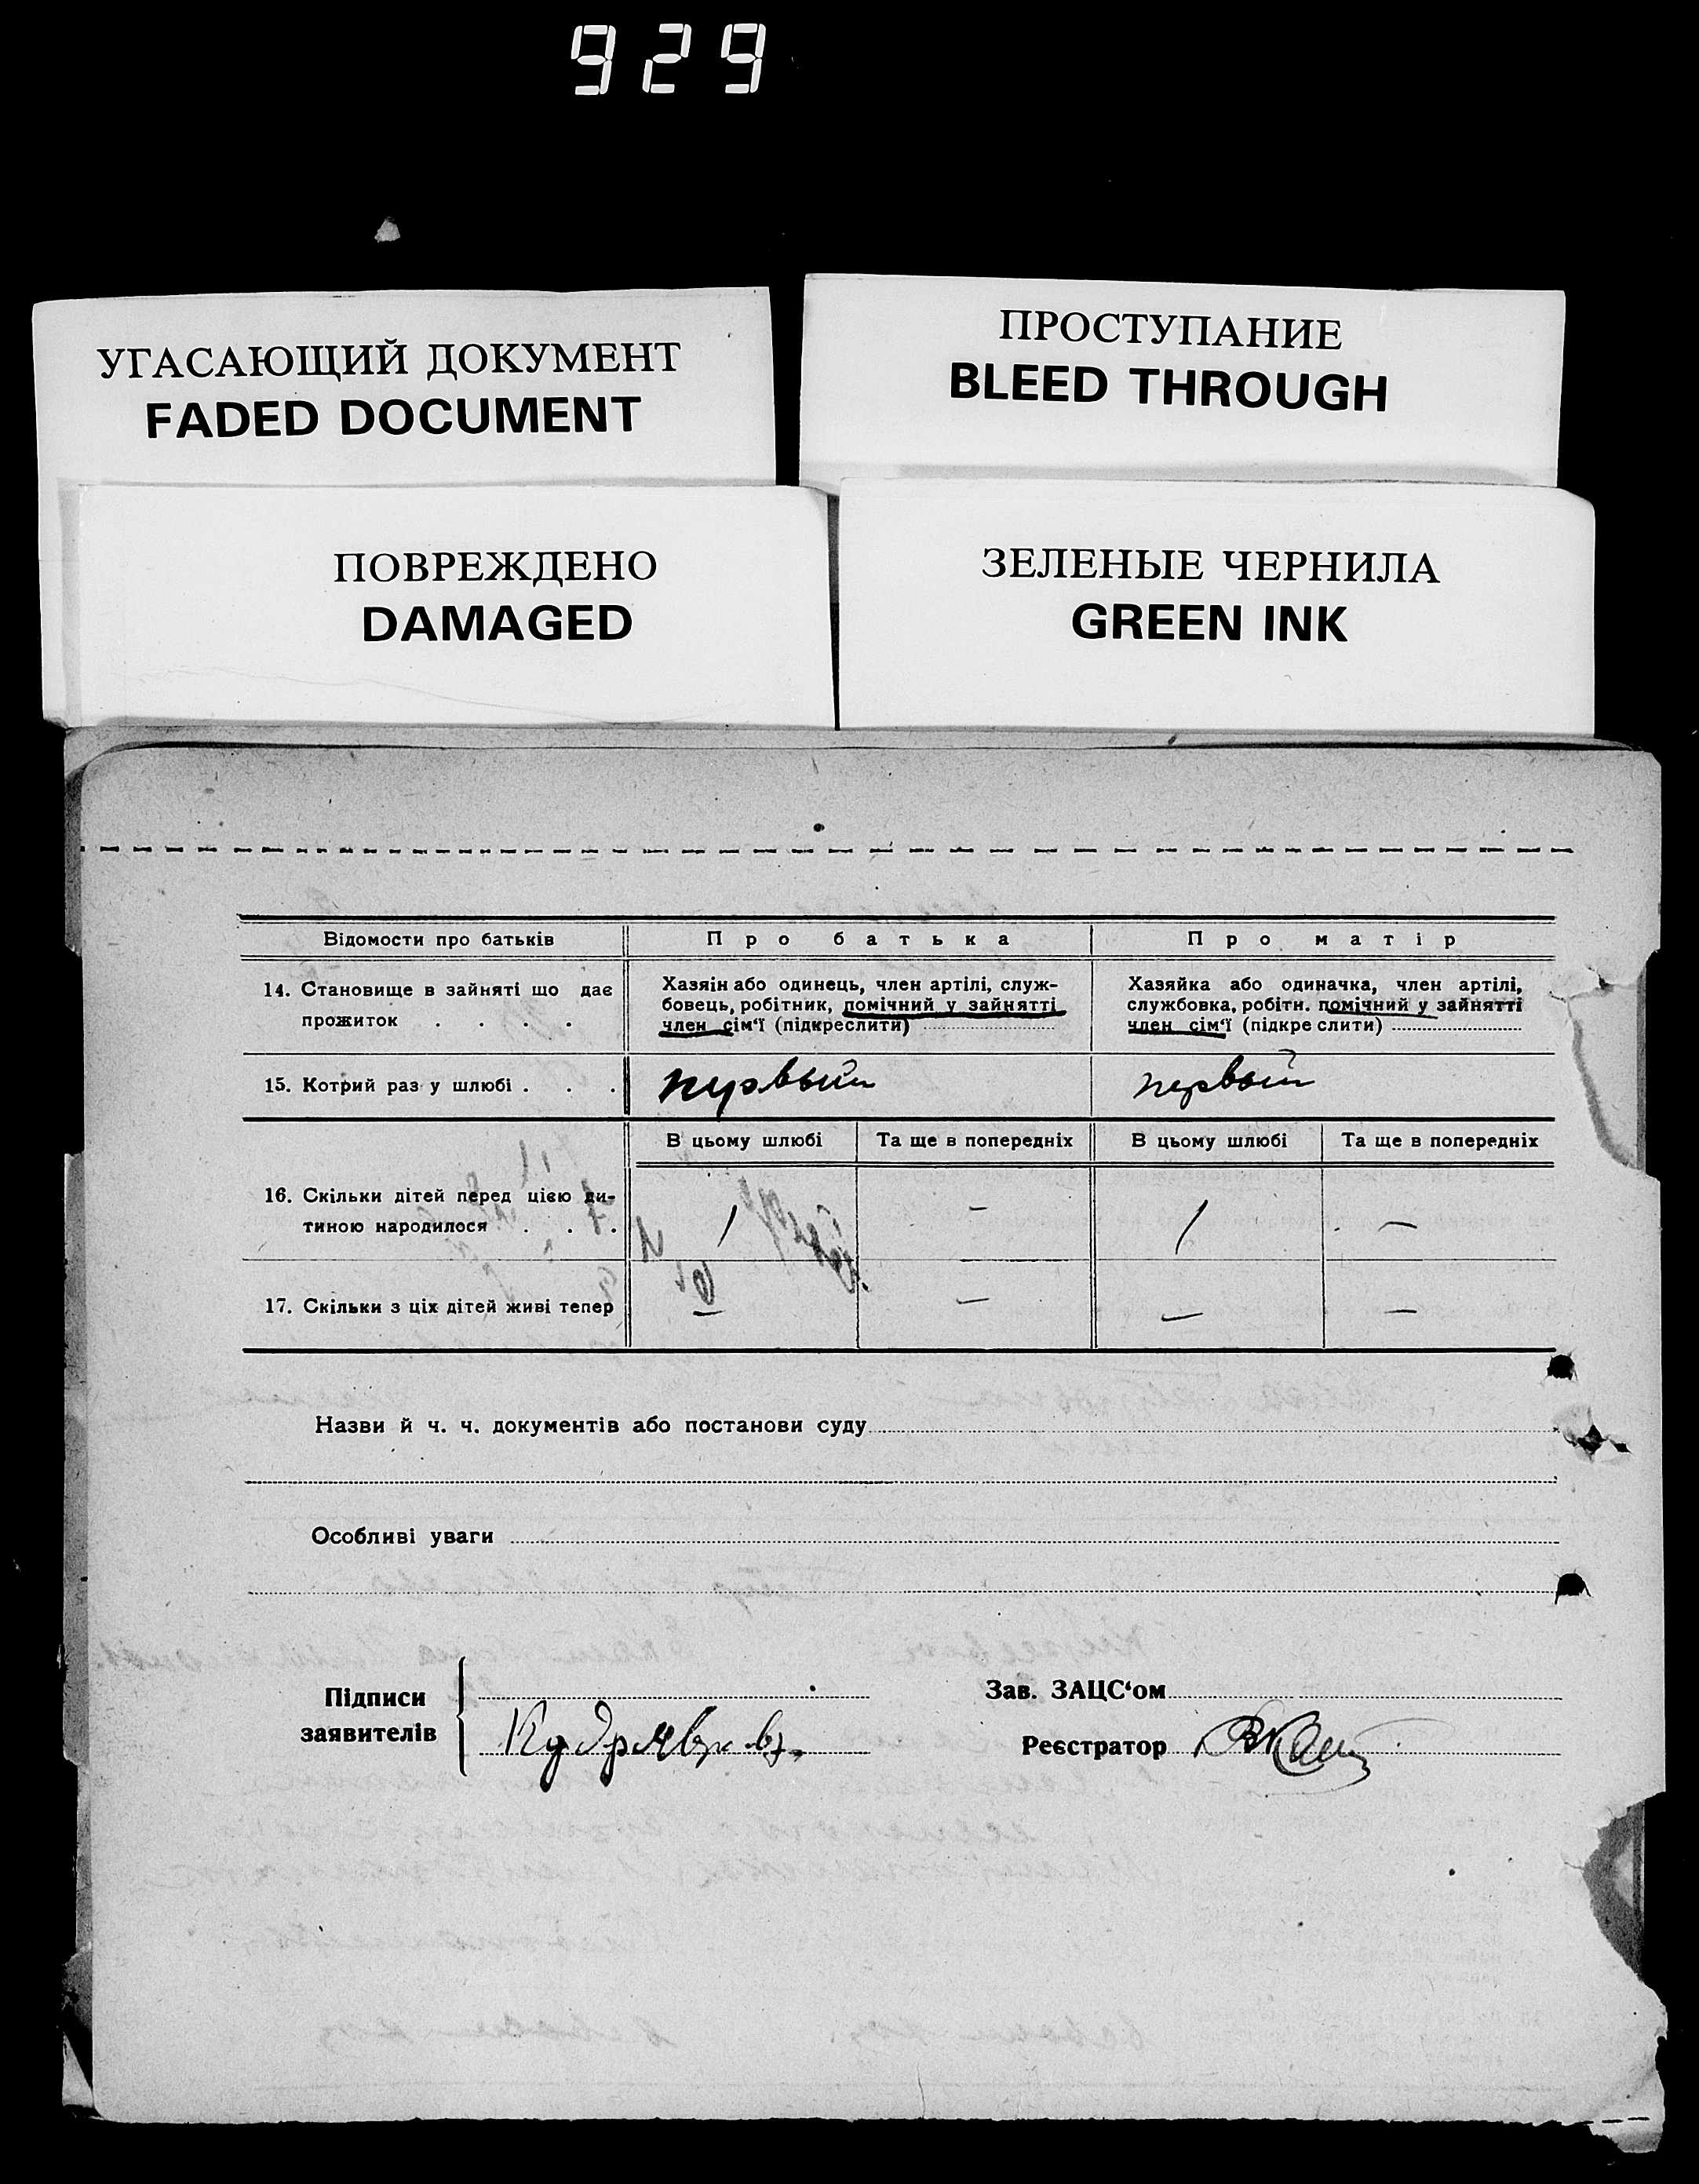 929
УГАСАЮЩИЙ ДОКУМЕНТ
FADED DOCUMENT
ПРОСТУПАНИЕ
BLEED THROUGH
ПОВРЕЖДЕНО
DAMAGED
ЗЕЛЕНЫЕ ЧЕРНИЛА
GREEN INK
Відомости про батьків Про батька Про матір
14. Становище в зайняті що дає
прожиток . . . .
Хазяін або одинець, член артілі, служ-
бовець, робітник, помічний у зайнятті
член сім‘ї (підкреслити)
Хазяйка або одиначка, член артілі,
службовка, робітн. помічний у зайнятті
член сім‘ї (підкре слити)
15. Котрий раз у шлюбі . . . первый первый
В цьому шлюбі Та ще в попередніх В цьому шлюбі Та ще в попередніх
16. Скільки дітей перед цією ди-
тиною народилося . . . 1 – 1 –
17. Скільки з ціх дітей живі тепер – – – –
Назви й ч. ч. документів або постанови суду
Особливі уваги
Підписи
заявителів
Зав. ЗАЦС‘ом
Реєстратор